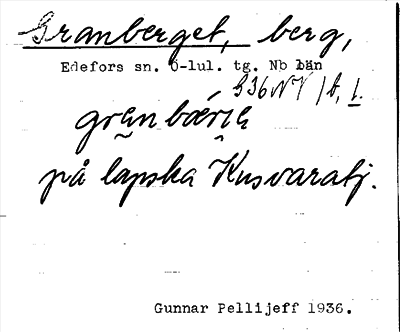 Granberget, berg,
Edefors sn. Ö-lul. tg. Nb län
S36NV /b, 1.
på lapska Kusvaratj.
Gunnar Pellijeff 1936.